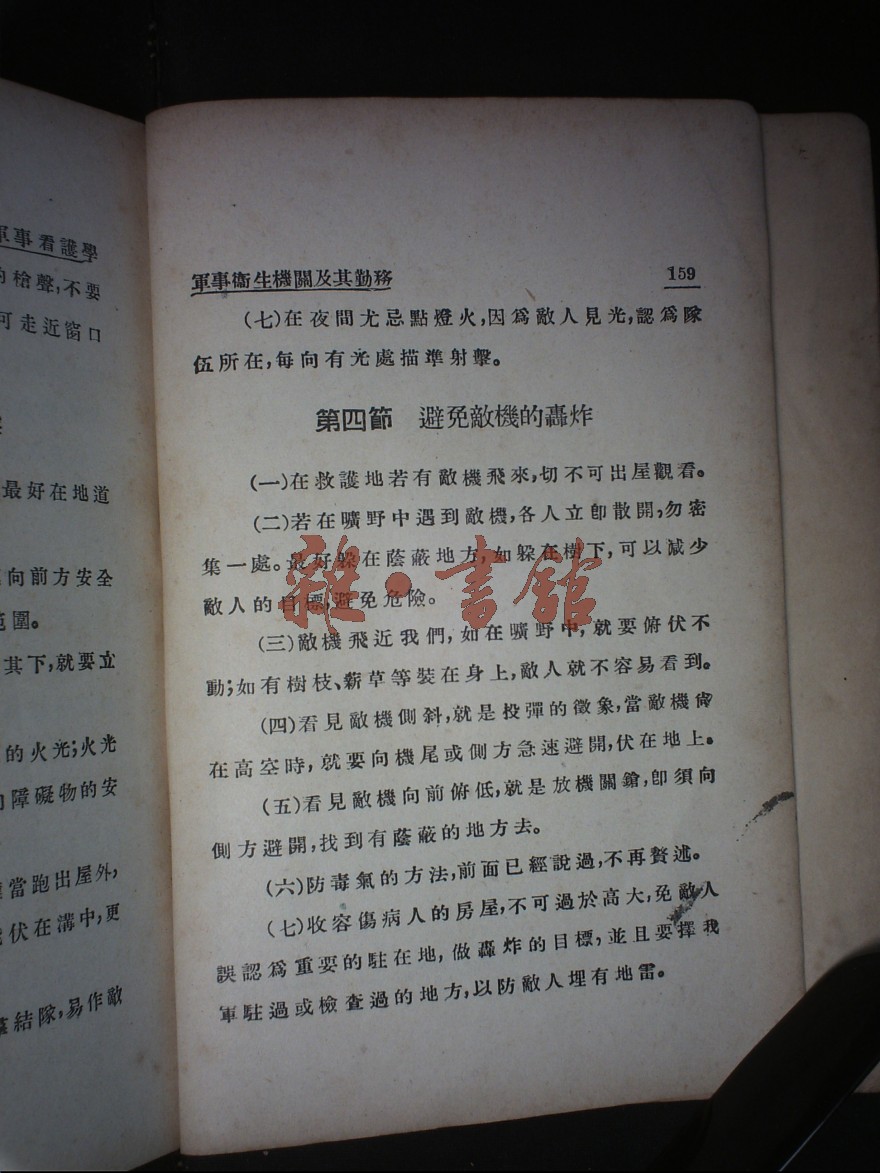 軍事看護學
的槍聲,不要
可走近窗口
最好在地道
向前方安全
範圍。
其下,就要立
的火光;火光
障礙物的安
當跑出屋外,
伏在溝中,更
結隊,易作敵
軍事衛生機關及其勤務 159
(七)在夜間尤忌點燈火,因爲敵人見光,認爲隊
伍所在,每向有光處描準射擊。
第四節 避免敵機的轟炸
(一)在救護地若有敵機飛來,切不可出屋觀看。
(二)若在曠野中遇到敵機,各人立卽散開,勿密
集一處。最好躱在蔭蔽地方,如躱在樹下,可以減少
敵人的目標,避免危險。
(三)敵機飛近我們,如在曠野中,就要俯伏不
動;如有樹枝、薪草等裝在身上,敵人就不容易看到。
(四)看見敵機側斜,就是投彈的徵象,當敵機尙
在高空時,就要向機尾或側方急速避開,伏在地上。
(五)看見敵機向前俯低,就是放機關鎗,卽須向
側方避開,找到有蔭蔽的地方去。
(六)防毒氣的方法,前面已經說過,不再贅述。
(七)收容傷病人的房屋,不可過於高大,免敵人
誤認爲重要的駐在地,做轟炸的目標,並且要擇我
軍駐過或檢查過的地方,以防敵人埋有地雷。
雜·書館